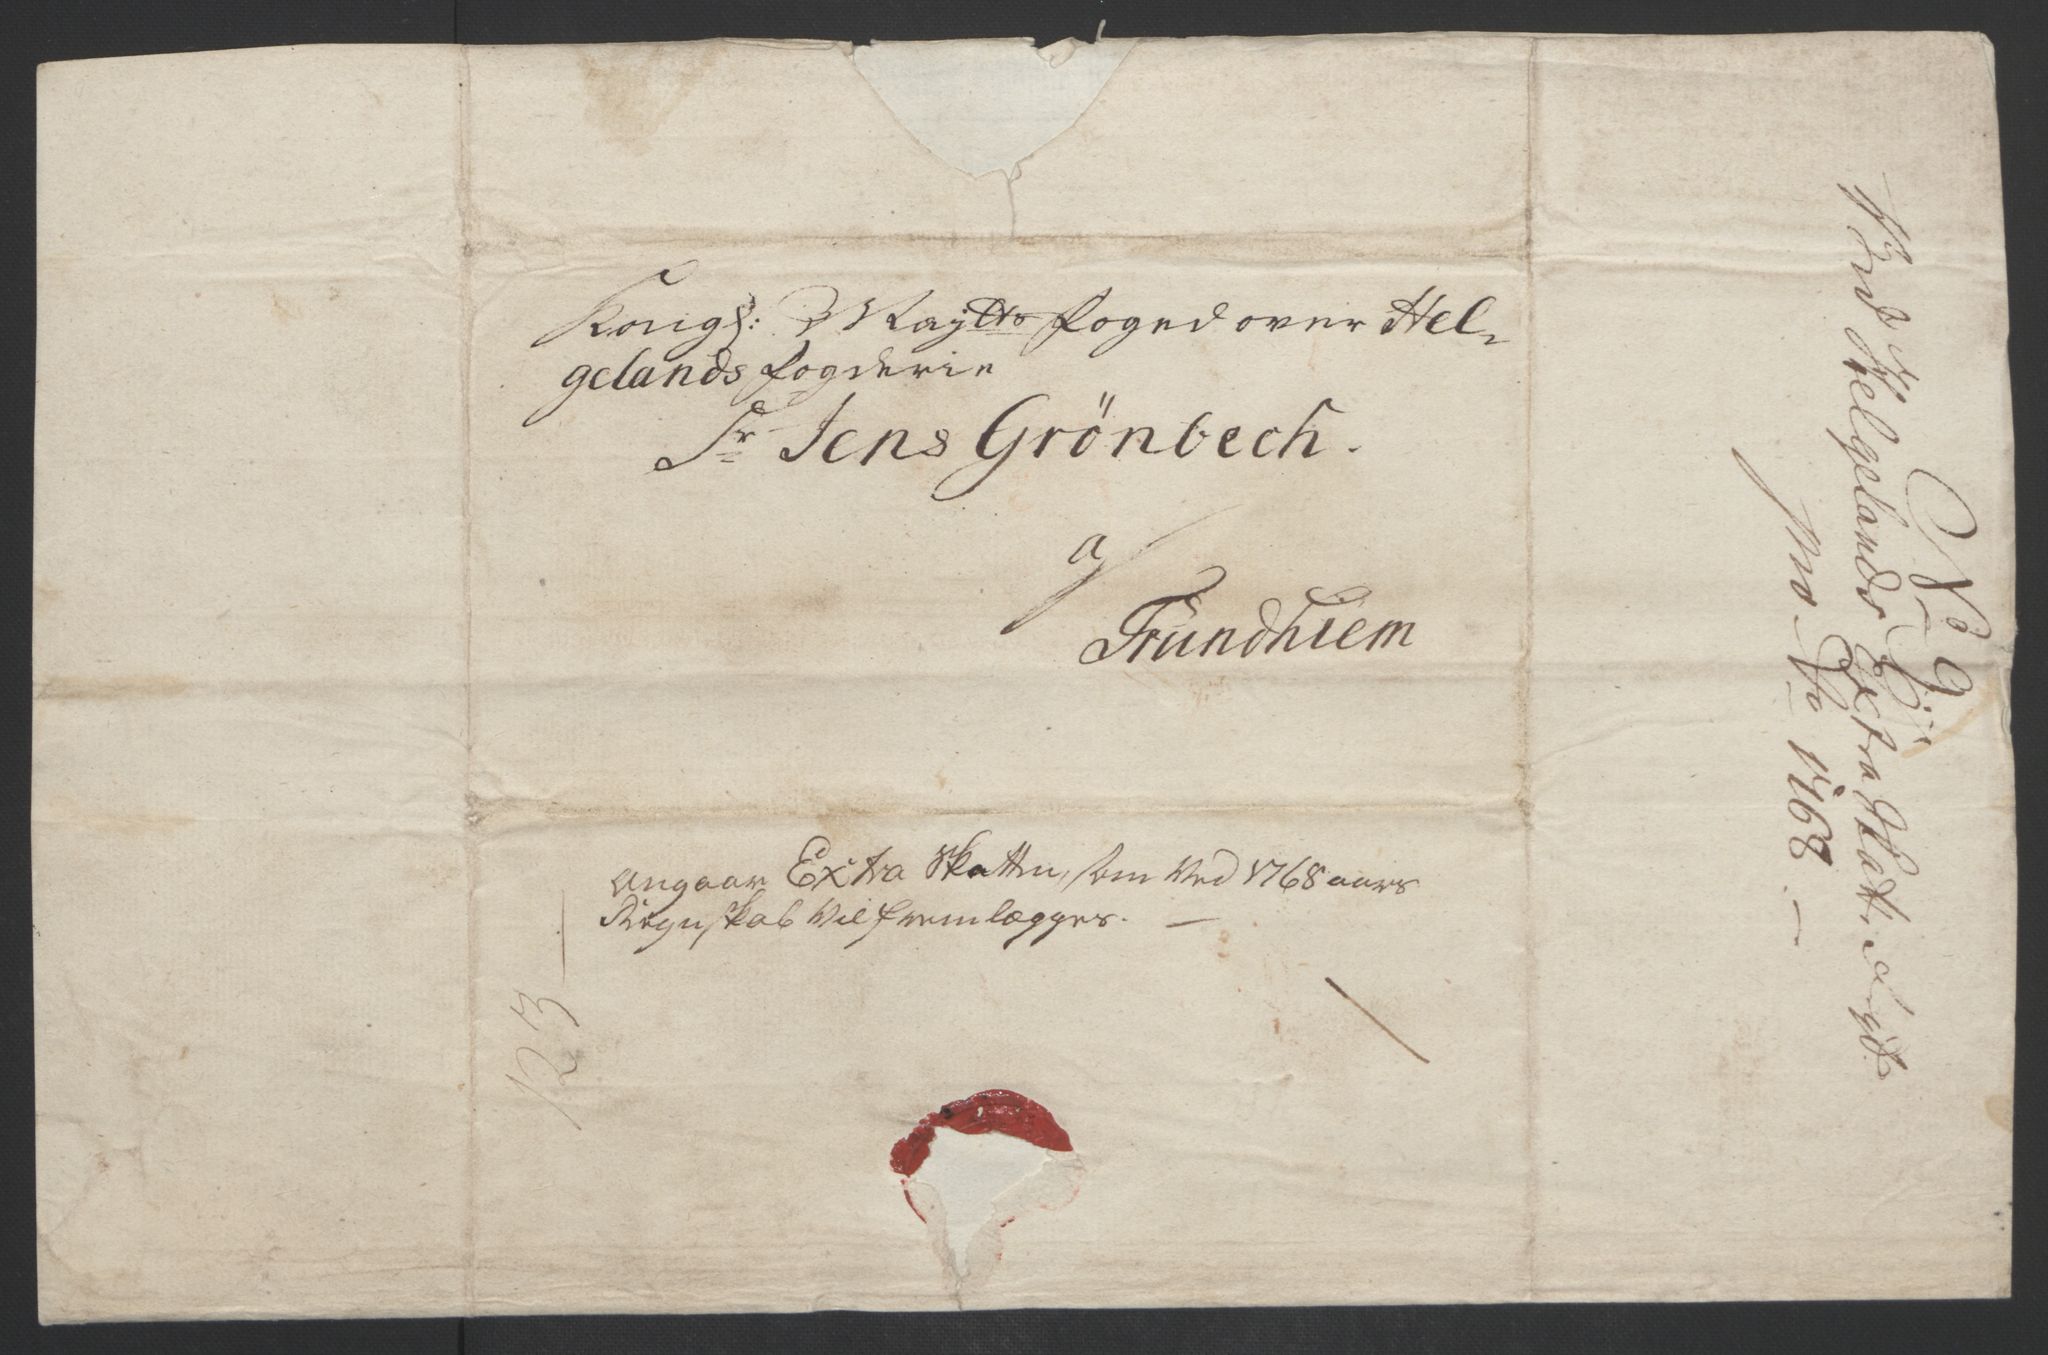 Kongl: Maytts foged over Hel-
gelands fogderie
Sr Jens Grönbech.
a/
Trundhiem
Angaar Extra Skatten, som ved 1768 aars
Regnskab vil fremlægges. —
123
No 9
Helgelands Extra Skatt
pro Ao 1768 —